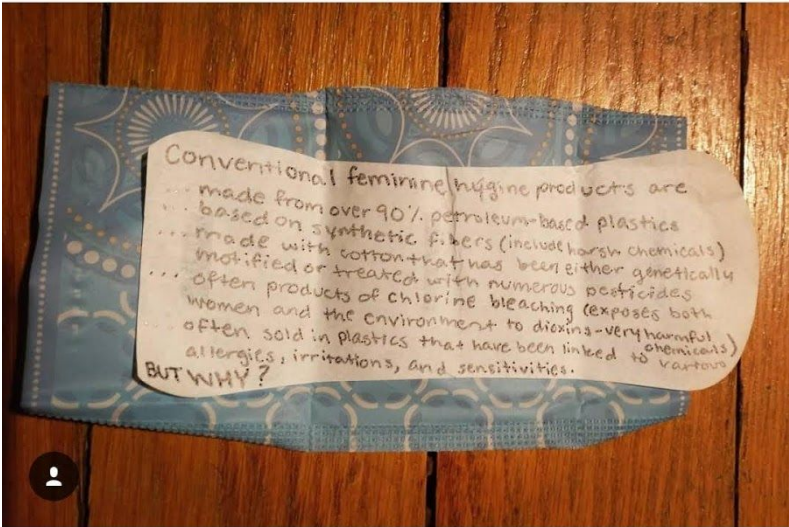 Conventional feminine hygine products are
... made from over 90% petroleum-based plastics
... based on synthetic fibers (include harsh chemicals)
... made with cotton that has been either genetically
motified or treated with numerous pesticides
... often products of chlorine bleaching (exposes both
women and the environment to dioxins - very harmful
chemicals)
often sold in plastics that have been linked to various
allergies, irritations, and sensitivities.
BUT WHY?